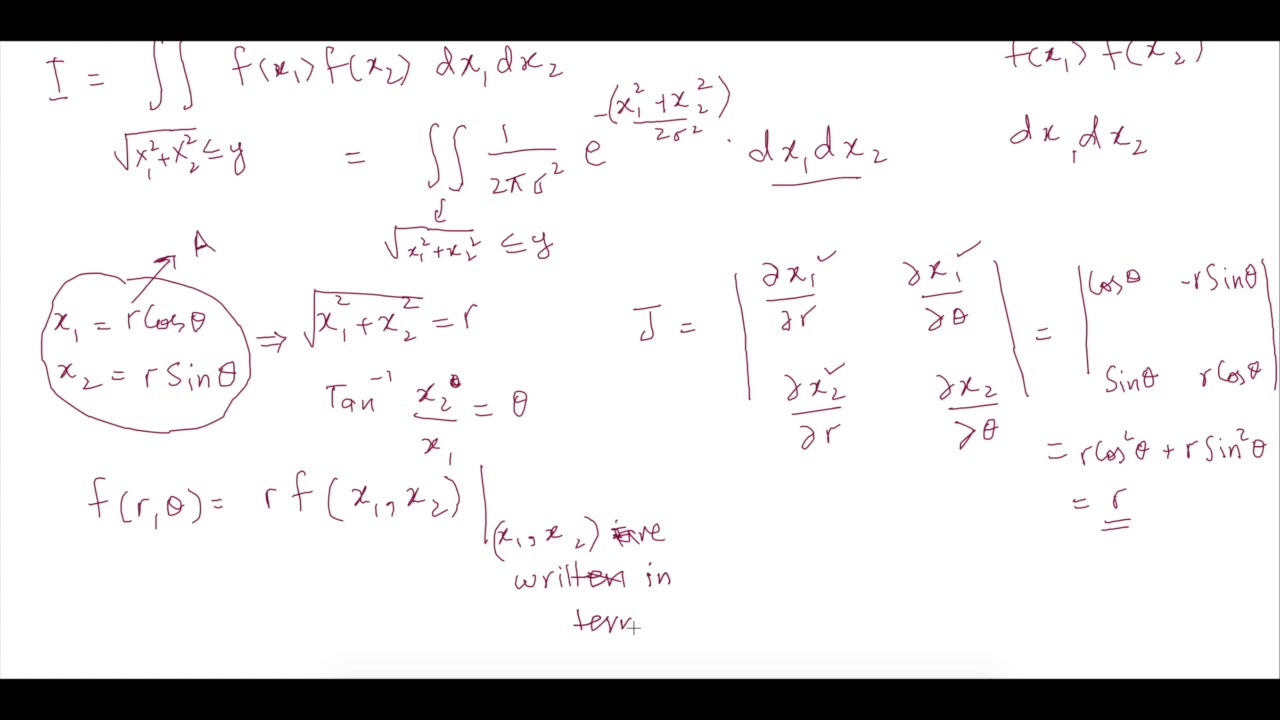 I = ∬ f(x₁) f(x₂) dx₁dx₂
√(x₁²+x₂²) ≤ y
f(x₁) f(x₂)
dx₁dx₂
= ∬ 1/(2πσ²) e^(-(x₁²+x₂²)/2σ²) · dx₁dx₂
√(x₁²+x₂²) ≤ y
A
x₁ = rCosθ
x₂ = rSinθ
⇒ √(x₁²+x₂²) = r
Tan⁻¹ x₂/x₁ = θ
J = | ∂x₁/∂r ✓ ∂x₁/∂θ ✓ |
| ∂x₂/∂r ✓ ∂x₂/∂θ |
= | Cosθ -rSinθ |
| Sinθ rCosθ |
= rCos²θ + rSin²θ
= r
f(r,θ) = r f(x₁,x₂) |
(x₁,x₂) are
written in
term